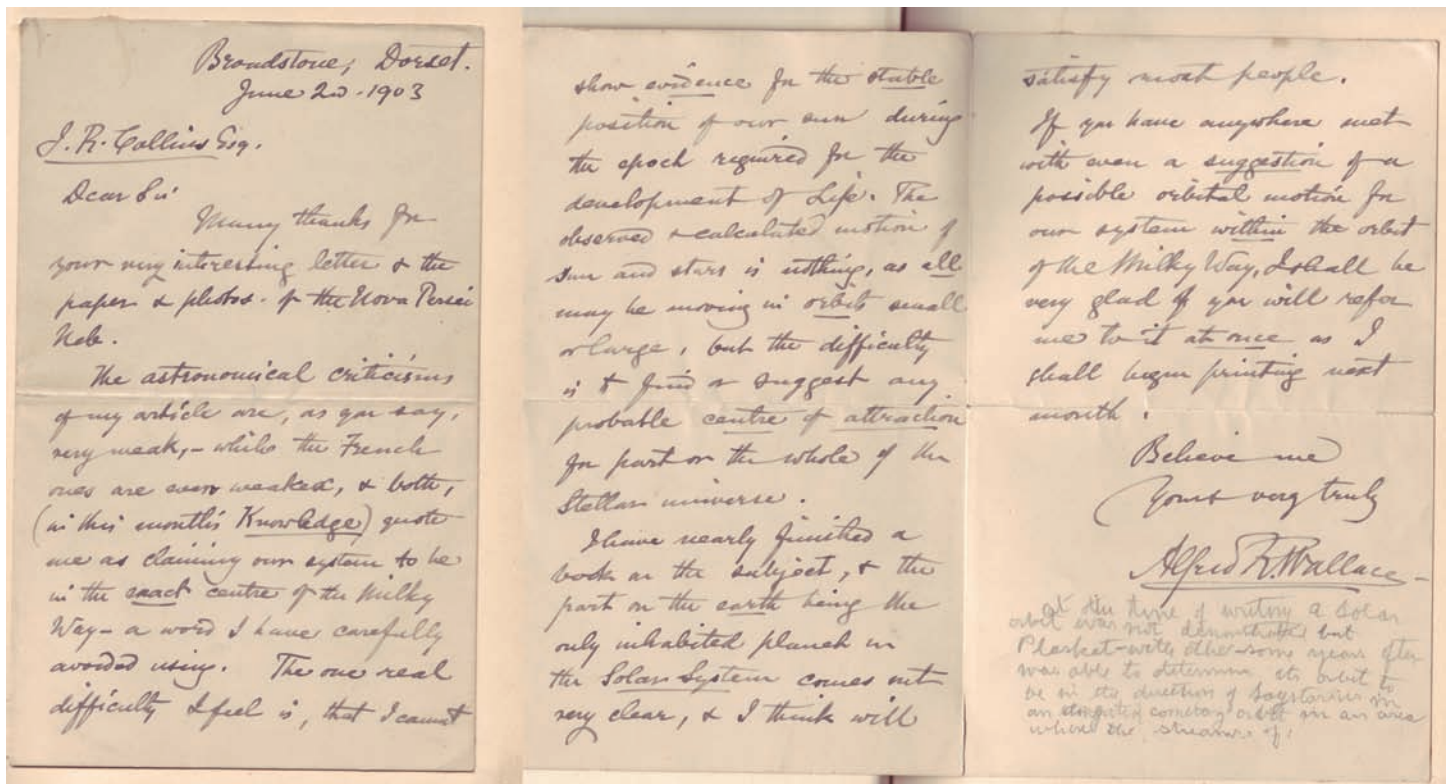 Broadstone, Dorset.
June 2nd. 1903
J. R. Collins Esq.
Dear Sir
Many thanks for
your very interesting letter & the
paper & photos. of the Nova Persei
Neb.
The astronomical criticisms
of my article are, as you say,
very weak, - while the French
ones are even weaker, & both,
(in this month's Knowledge) quote
me as claiming our system to be
in the exact centre of the Milky
Way - a word I have carefully
avoided using. The one real
difficulty I feel is, that I cannot
show evidence for the stable
position of our sun during
the epoch required for the
development of Life. The
observed & calculated motion of
sun and stars is nothing, as all
may be moving in orbits small
or large, but the difficulty
is to find or suggest any
probable centre of attraction
for part or the whole of the
Stellar universe.
I have nearly finished a
book on the subject, & the
part on the earth being the
only inhabited planet in
the Solar System comes out
very clear, & I think will
satisfy most people.
If you have anywhere met
with even a suggestion of a
possible orbital motion for
our system within the orbit
of the Milky Way, I shall be
very glad if you will refer
me to it at once as I
shall begin printing next
month.
Believe me
Yours very truly
Alfred R. Wallace
At the time of writing a Solar
orbit was not demonstrated but
Plasket - with other - some years after
was able to determine its orbit to
be in the direction of in
an elongated cometary orbit in an area
where the streams of